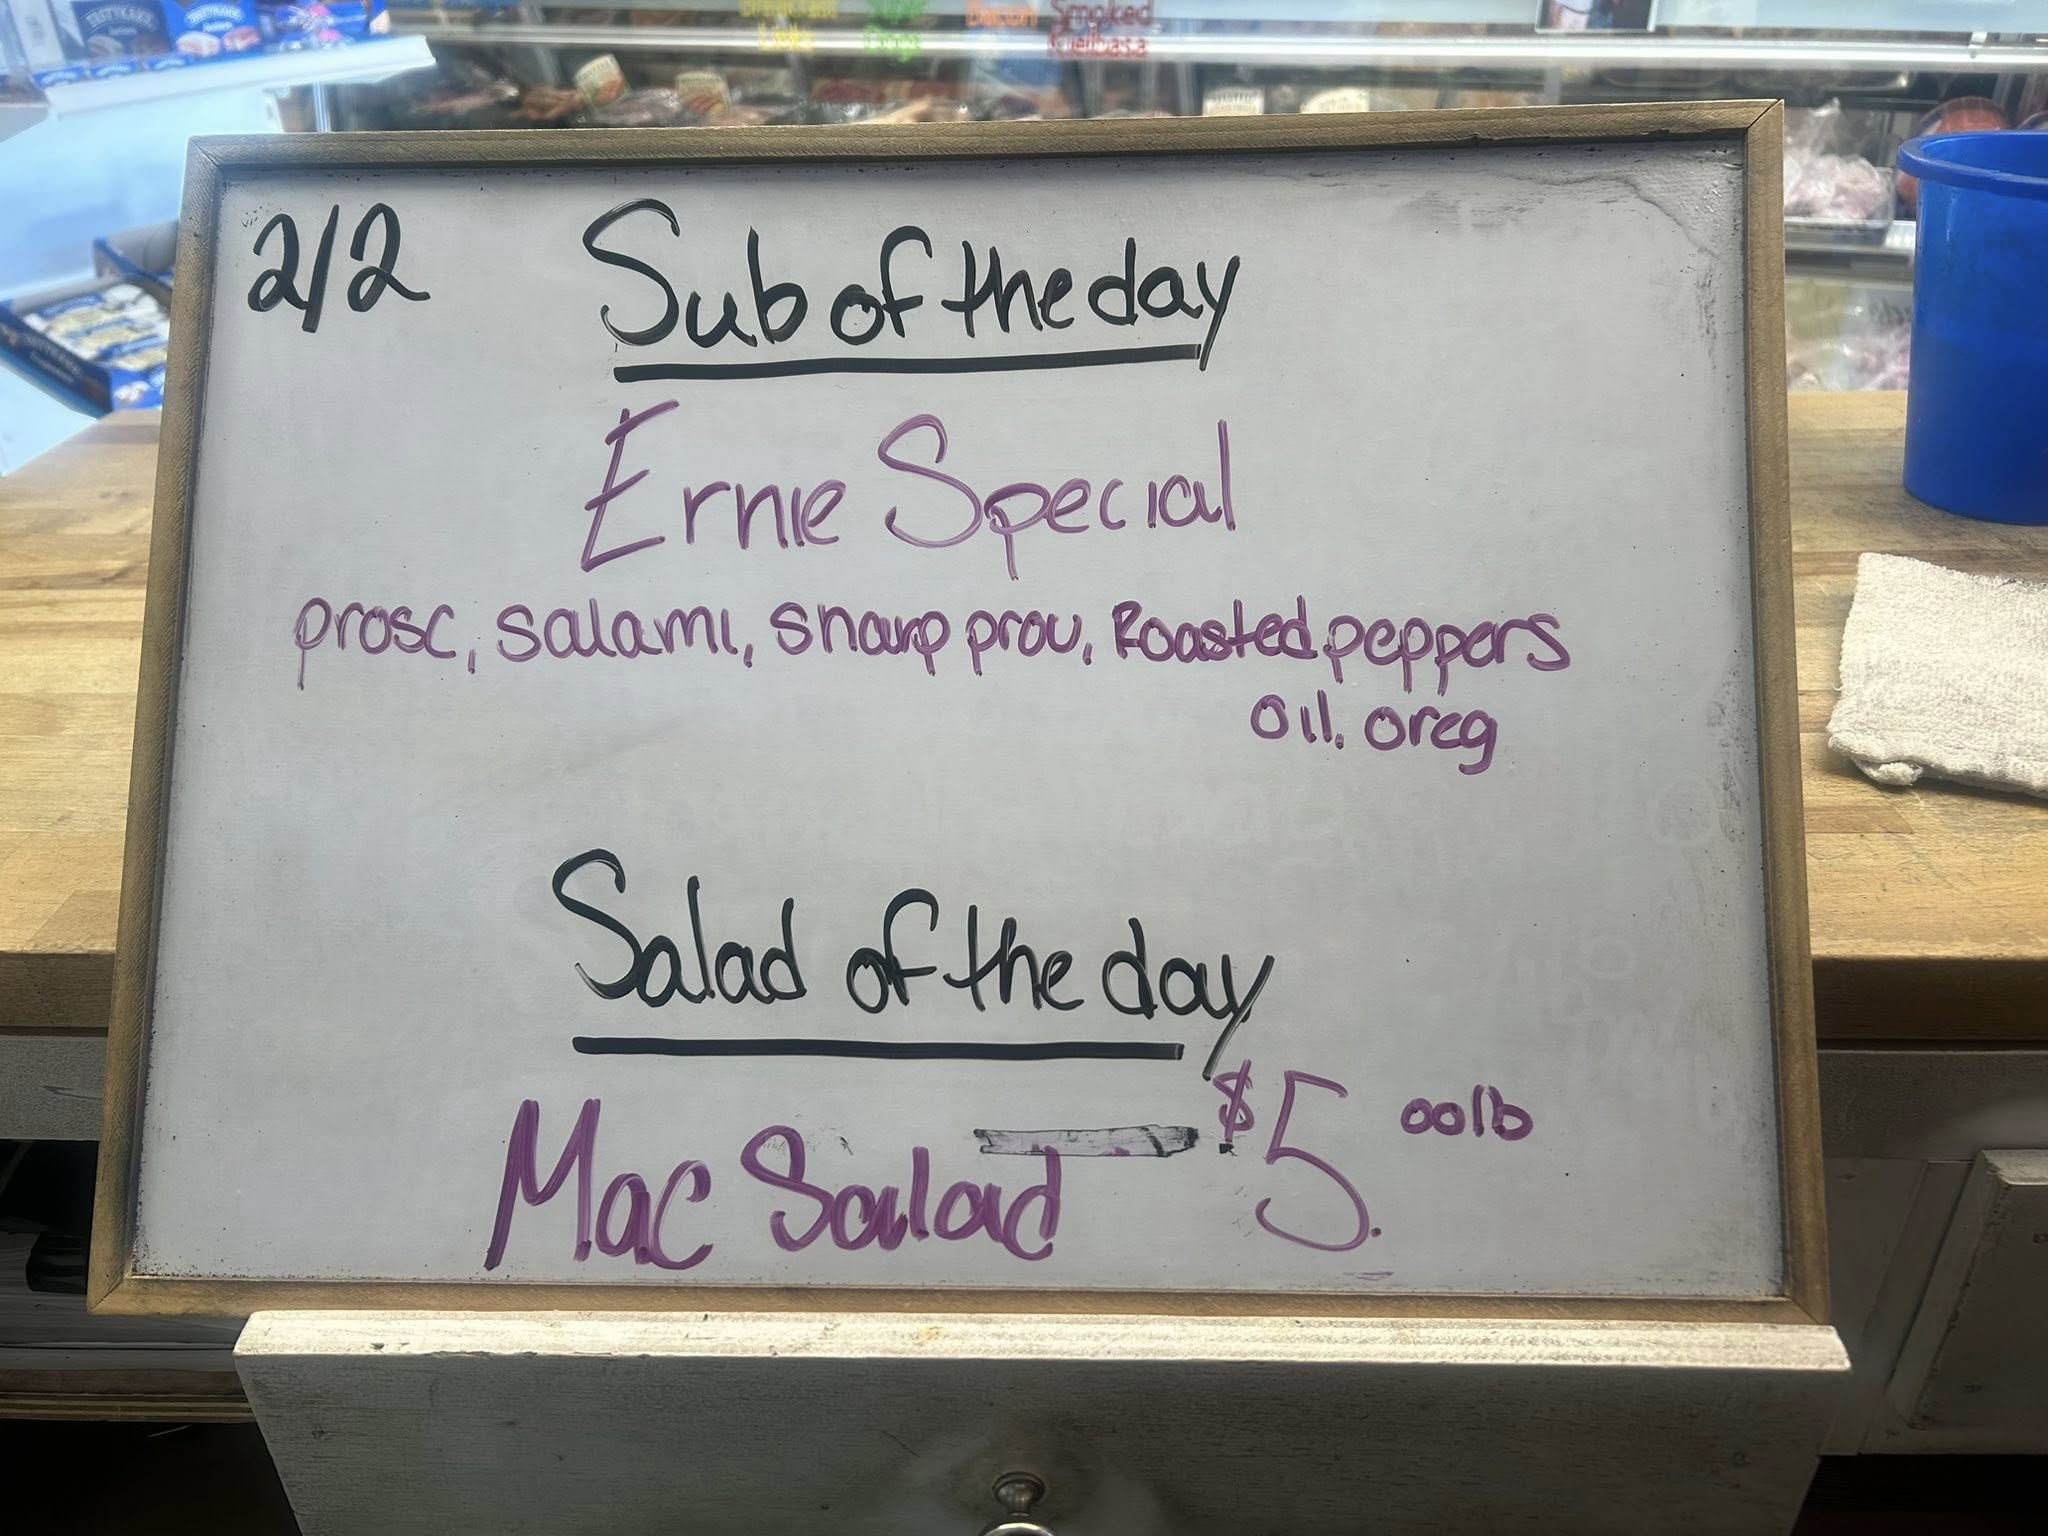 Smoked
Kielbasa
Bacon
2/2
Sub of the day
Ernie Special
prosc, salami, sharp prov, Roasted peppers
oil, oreg
Salad of the day
Mac Salad $5.00lb